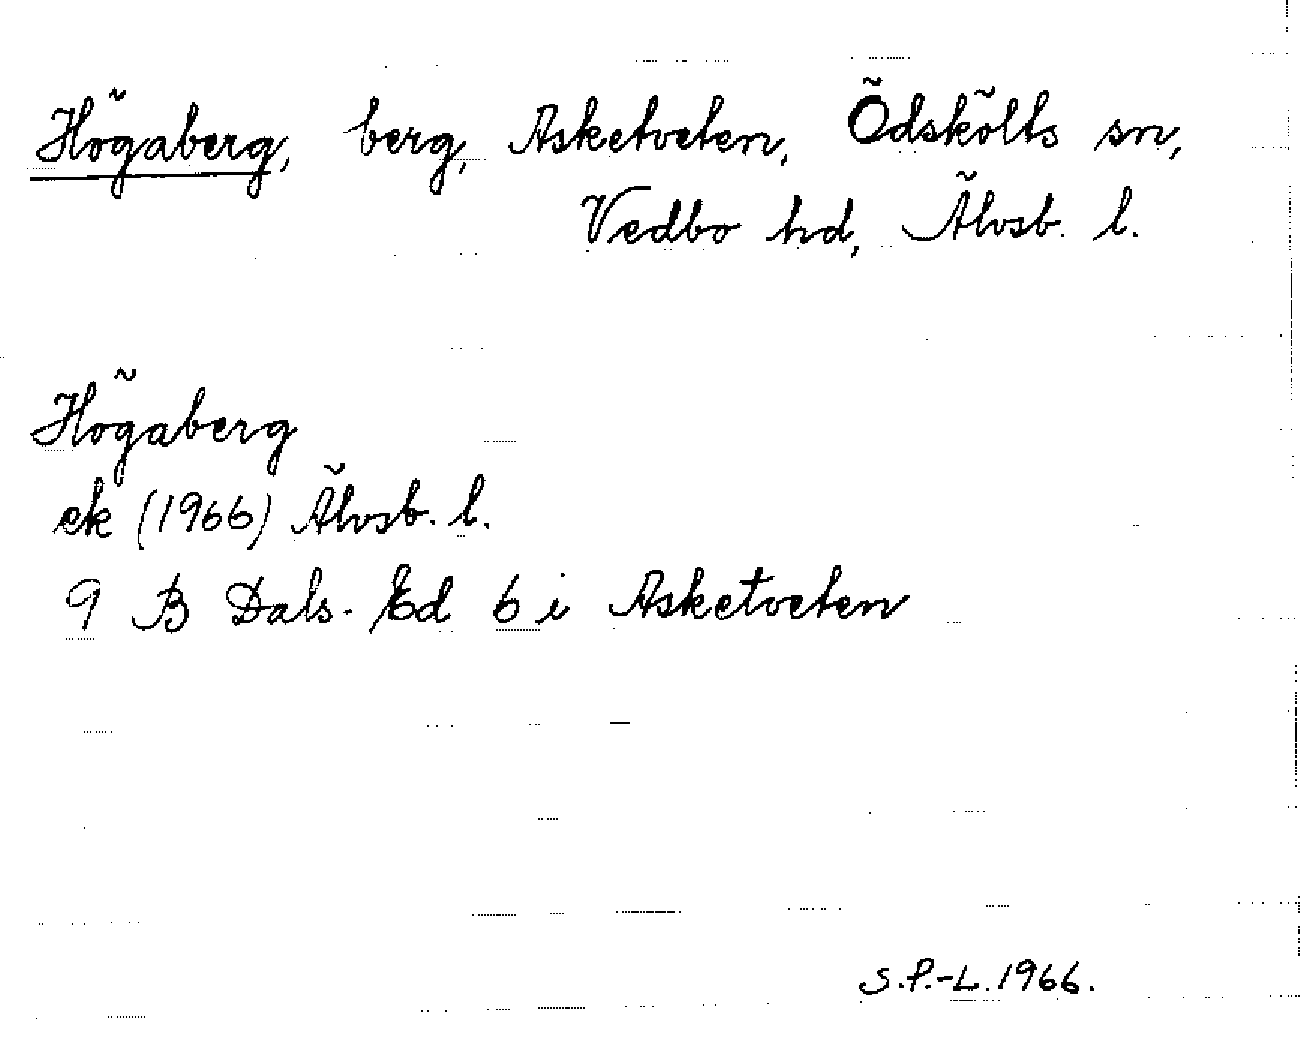 Högaberg, berg, Asketveten, Ödskölts sn,
Vedbo hd, Älvsb. l.
Högaberg
ek (1966) Älvsb. l.
9 B Dals-Ed 6 i Asketveten
S.P.-L. 1966.